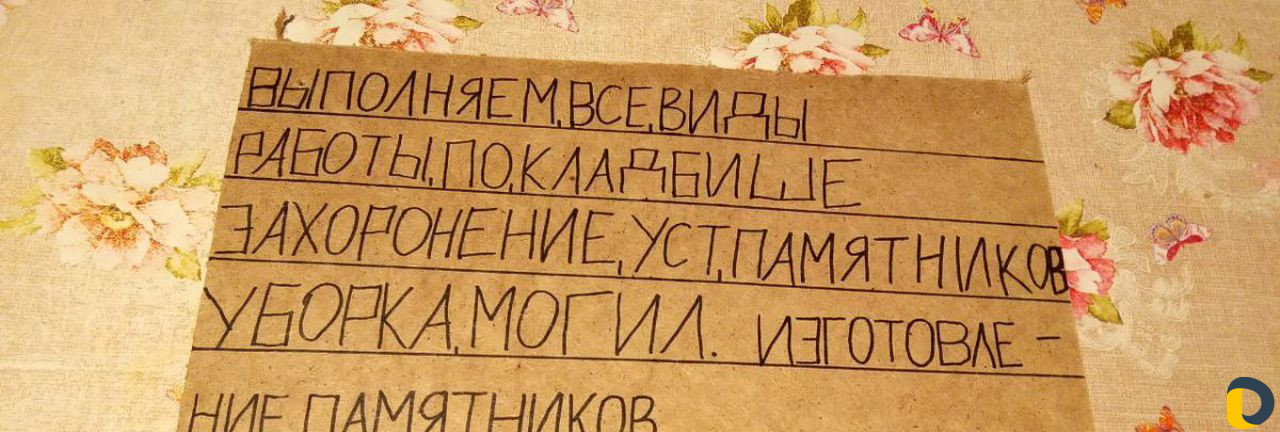 ВЫПОЛНЯЕМ,ВСЕ,ВИДЫ
РАБОТЫ,ПО,КЛАДБИШЕ
ЗАХОРОНЕНИЕ,УСТ,ПАМЯТНИКОВ
УБОРКА,МОГИЛ. ИЗГОТОВЛЕ-
НИЕ ПАМЯТНИКОВ